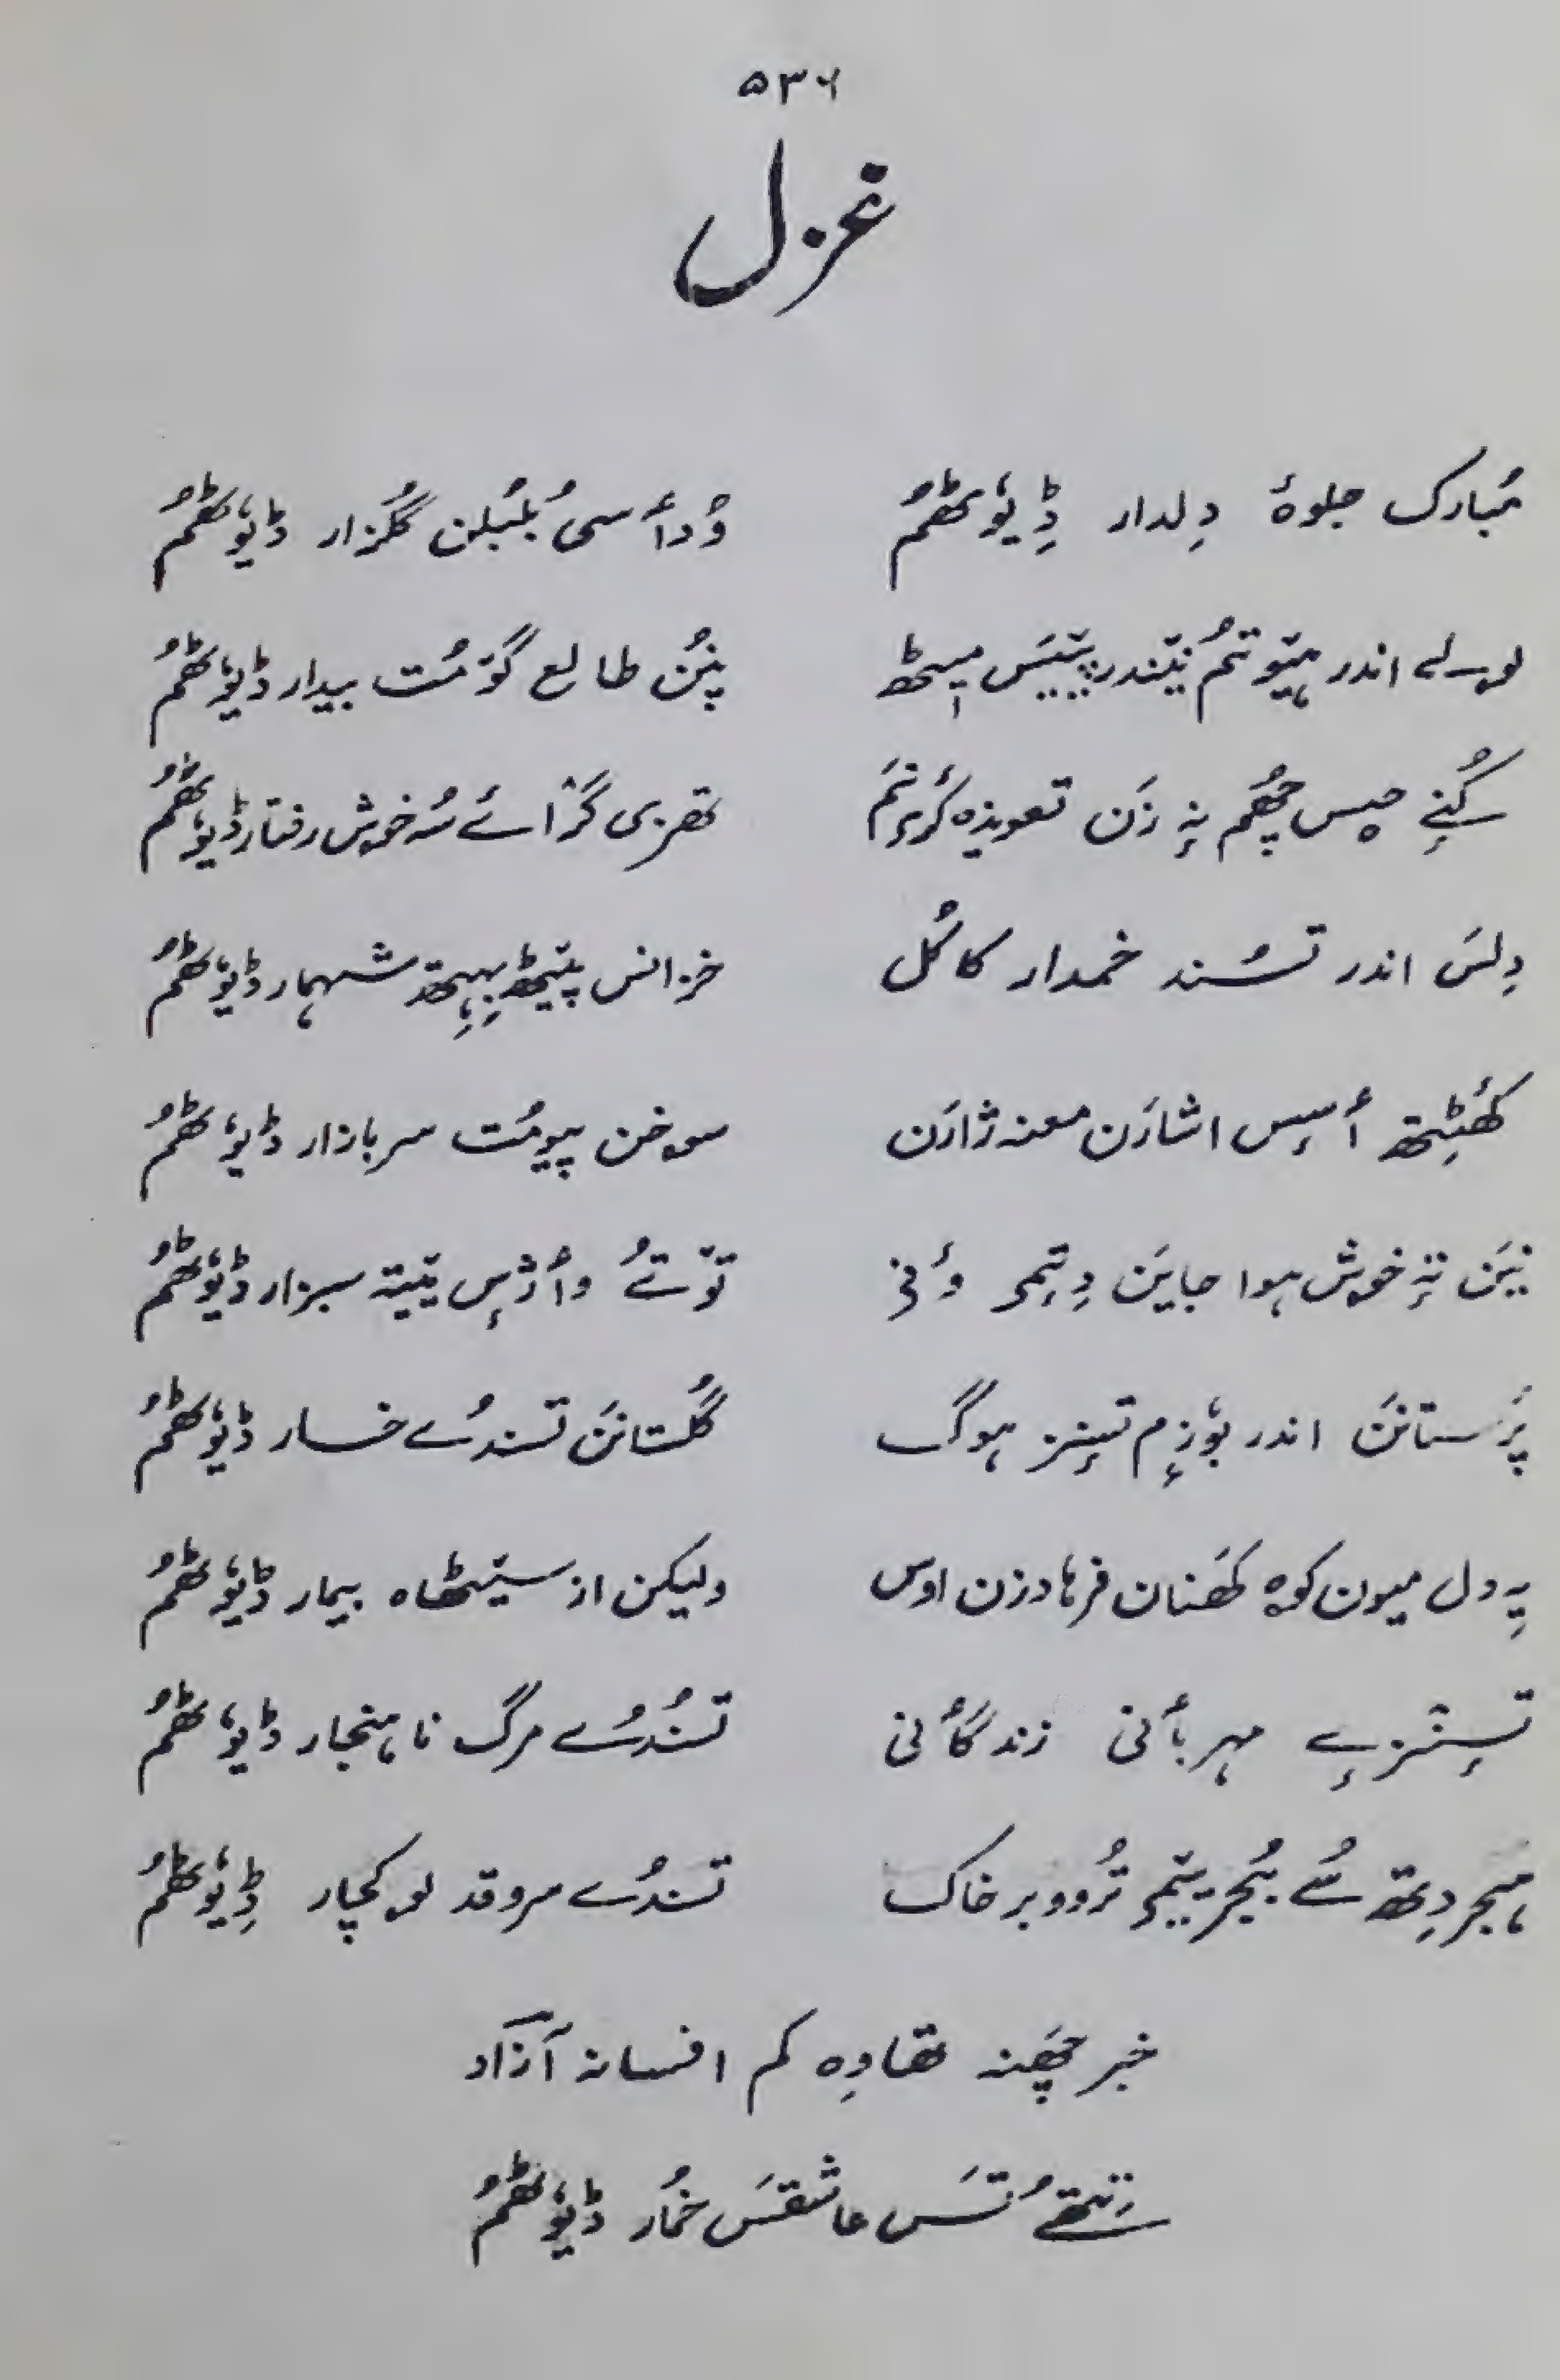 ۵۳۶
غزل
مُبارک جلوۂ دِلدار ڈِیوٗٹھمُ وُدأسی بُلبُلن گُلزار ڈیوٗٹھمُ
اندر ہیتوتمُ نیندر پیتیَس میٖٹھ پنُن طالع گوٚمُت بیدار ڈیوٗٹھمُ
کُنے چھُم نہٕ زَن تعویذہ کٔرۍتَم تھزی گرٛاے سُہ خوش رفتار ڈیوٗٹھمُ
دِلسَ اندر تسُند خمدار کاکُل خزانس پیٚٹھ بِہِتھ شہمار ڈیوٗٹھمُ
کھٔٹِتھ أسِس اشارَن معنہ ژارَن سوخن پیومُت سرِبازار ڈیوٗٹھمُ
نیَن تہٕ خوش ہوا جایَن دِتِمۍ وٲنی توٚتےُ وأژٕس یٚتیتہ سبزار ڈیوٗٹھمُ
پرَستانَن اندر بوٗزِم تہٕنز ہوگ گُلستانَن تسندُے خسار ڈیوٗٹھمُ
یہِ دل میون کوہ کھَنان فرہاد زن اوس ولیکن از سیٚٹھاہ بیمار ڈیوٗٹھمُ
تسٕنٛزےٕ مہربأنی زندگأنی تسُندُے مرگ ناہنجار ڈیوٗٹھمُ
دِتھ سُے تُرووبر خاک تسندُے سروقد لوکچار ڈِیوٗٹھمُ
خبر چھَنہ تھاوِہ کم افسانہ آزاد
تِتھےُ تسَ عاشقسَ خمُار ڈیوٗٹھمُ